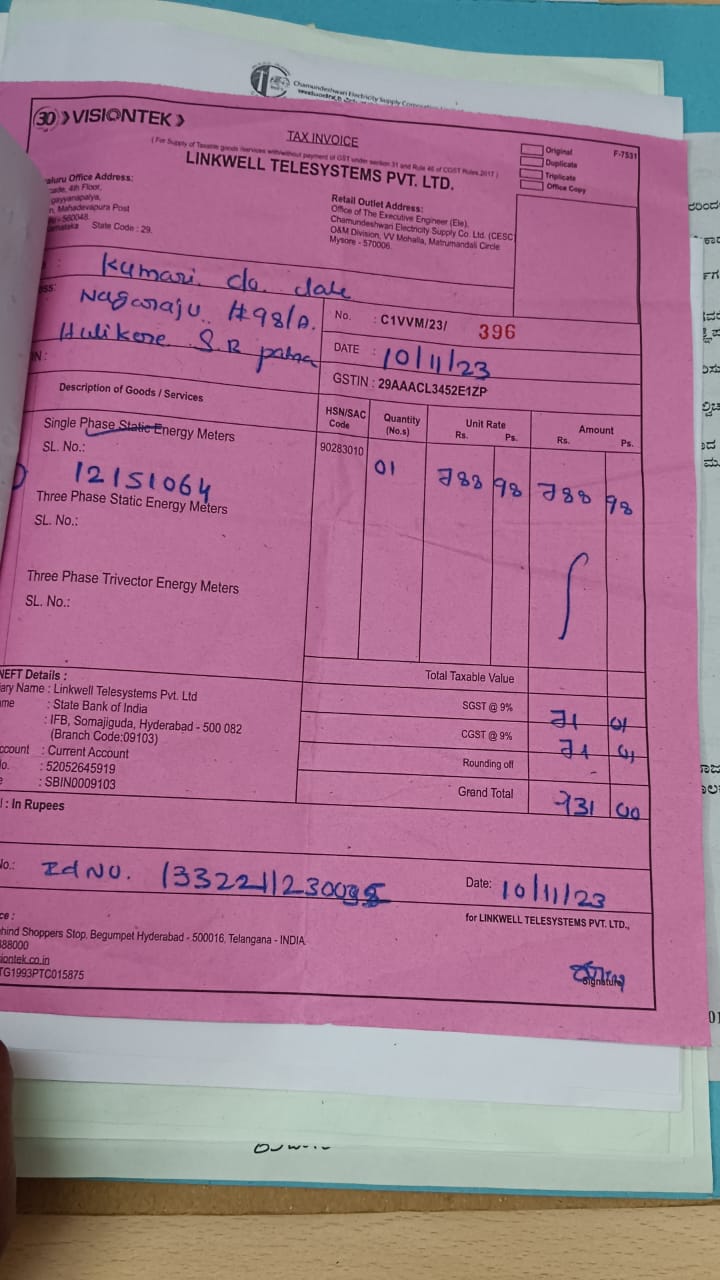 Chamundeshwari Electricity Supply Corporation
30 VISIONTEK
TAX INVOICE
( For Supply of Taxable goods /services with/without payment of GST under section 31 and Rule 46 of CGST Rules 2017 )
LINKWELL TELESYSTEMS PVT. LTD.
Original
Duplicate
Triplicate
Office Copy
F-7531
aluru Office Address:
ade, 4th Floor,
gayyanapalya,
n, Mahadevapura Post
- 560048.
rnataka State Code : 29.
Retail Outlet Address:
Office of The Executive Engineer (Ele),
Chamundeshwari Electricity Supply Co. Ltd. (CESC
O&M Division, VV Mohalla, Matrumandali Circle
Mysore - 570006.
: Kumari c/o. late
ess: Nagaraju #98/A.
Hulikere S.R patna
N :
No. : C1VVM/23/ 396
DATE : 10/11/23
GSTIN : 29AAACL3452E1ZP
Description of Goods / Services
HSN/SAC Code
Quantity (No.s)
Unit Rate Rs. Ps.
Amount Rs. Ps.
Single Phase Static Energy Meters
SL. No.:
12151064
90283010 01 788 98 788 98
Three Phase Static Energy Meters
SL. No.:
Three Phase Trivector Energy Meters
SL. No.:
Total Taxable Value
SGST @ 9% 71 01
CGST @ 9% 71 01
Rounding off -
Grand Total 931 00
NEFT Details :
ary Name : Linkwell Telesystems Pvt. Ltd
me : State Bank of India
: IFB, Somajiguda, Hyderabad - 500 082
(Branch Code:09103)
ccount : Current Account
o. : 52052645919
e : SBIN0009103
l : In Rupees
No.: Rd NO.
Date: 10/11/23
for LINKWELL TELESYSTEMS PVT. LTD.,
ce :
ehind Shoppers Stop, Begumpet Hyderabad - 500016, Telangana - INDIA
888000
siontek.co.in
TG1993PTC015875
Signature